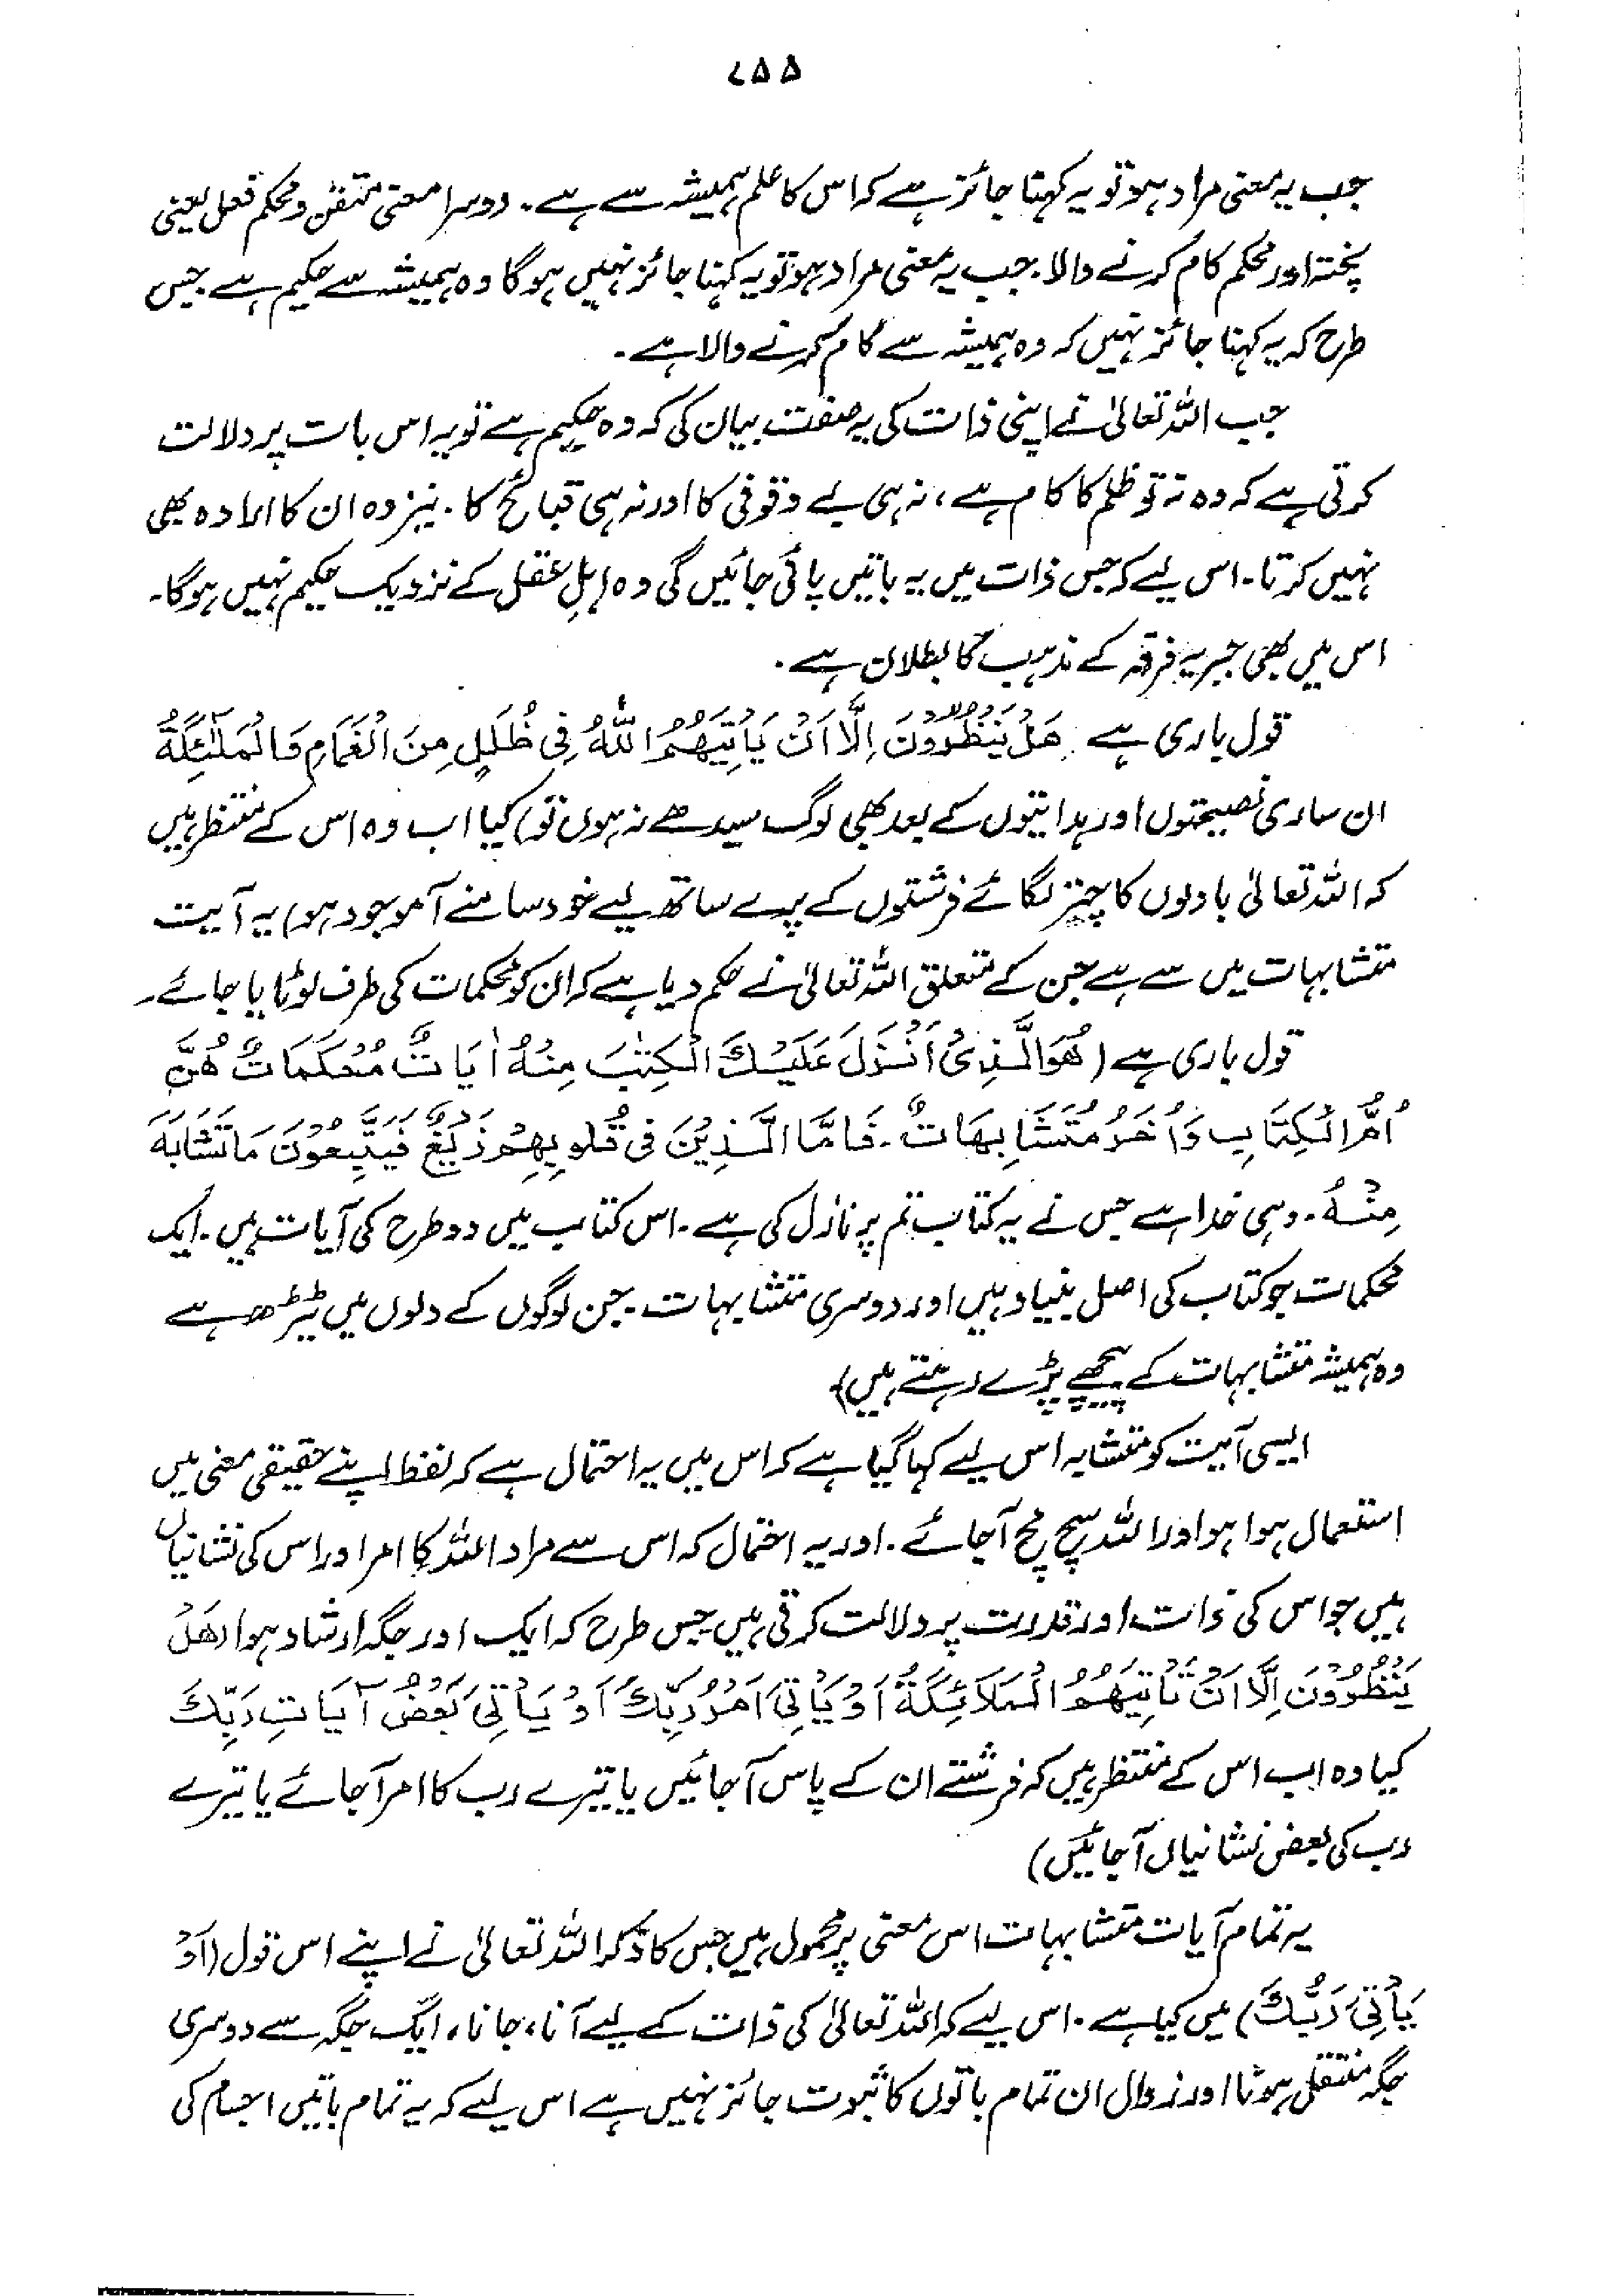 ۷۵۵
جب یہ معنی مراد ہو تو یہ کہنا جائز ہے کہ اس کا علم ہمیشہ سے ہے۔ دوسرا معنی متقن و محکم فعل یعنی
پختہ اور محکم کام کرنے والا۔ جب یہ معنی مراد ہو تو یہ کہنا جائز نہیں ہوگا وہ ہمیشہ سے حکیم ہے جس
طرح کہ یہ کہنا جائز نہیں کہ وہ ہمیشہ سے کام کرنے والا ہے۔
جب اللہ تعالیٰ نے اپنی ذات کی یہ صفت بیان کی کہ وہ حکیم ہے تو یہ اس بات پر دلالت
کرتی ہے کہ وہ نہ تو ظلم کا کام ہے، نہ ہی بے وقوفی کا اور نہ ہی قبائح کا۔ نیز وہ ان کا ارادہ بھی
نہیں کرتا۔ اس لیے کہ جس ذات میں یہ باتیں پائی جائیں گی وہ اہلِ عقل کے نزدیک حکیم نہیں ہوگا۔
اس میں بھی جبریہ فرقہ کے مذہب کا بطلان ہے۔
قول باری ہے هَلْ يَنْظُرُوْنَ اِلَّا اَنْ يَاْتِيَهُمُ اللّٰهُ فِيْ ظُلَلٍ مِنَ الْغَمَامِ وَالْمَلٰٓئِكَةُ
ان ساری نصیحتوں اور ہدایتوں کے بعد بھی لوگ سیدھے نہ ہوں تو) کیا اب وہ اس کے منتظر ہیں
کہ اللہ تعالیٰ بادلوں کا چتر لگائے فرشتوں کے پرے ساتھ لیے خود سامنے آموجود ہو) یہ آیت
متشابہات میں سے ہے جن کے متعلق اللہ تعالیٰ نے حکم دیا ہے کہ ان کو محکمات کی طرف لوٹایا جائے۔
قول باری ہے (هُوَ الَّذِيْ اَنْزَلَ عَلَيْكَ الْكِتٰبَ مِنْهُ اٰيَاتٌ مُحْكَمَاتٌ هُنَّ
اُمُّ الْكِتَابِ وَاُخَرُ مُتَشَابِهَاتٌ۔ فَاَمَّا الَّذِيْنَ فِيْ قُلُوبِهِمْ زَيْغٌ فَيَتَّبِعُوْنَ مَا تَشَابَهَ
مِنْهُ۔ وہی خدا ہے جس نے یہ کتاب تم پر نازل کی ہے۔ اس کتاب میں دو طرح کی آیات ہیں۔ ایک
محکمات جو کتاب کی اصل بنیاد ہیں اور دوسری متشابہات۔ جن لوگوں کے دلوں میں ٹیڑھ ہے
وہ ہمیشہ متشابہات کے پیچھے پڑے رہتے ہیں)
ایسی آیت کو متشابہ اس لیے کہا گیا ہے کہ اس میں یہ احتمال ہے کہ لفظ اپنے حقیقی معنی میں
استعمال ہوا ہو اور اللہ سچ مچ آجائے۔ اور یہ احتمال کہ اس سے مراد اللہ کا امر اور اس کی نشانیاں
ہیں جو اس کی ذات اور قدرت پر دلالت کرتی ہیں جس طرح کہ ایک اور جگہ ارشاد ہوا (هَلْ
يَنْظُرُوْنَ اِلَّا اَنْ تَاْتِيَهُمُ الْمَلَائِكَةُ اَوْ يَاْتِيَ اَمْرُ رَبِّكَ اَوْ يَاْتِيَ بَعْضُ آيَاتِ رَبِّكَ
کیا وہ اب اس کے منتظر ہیں کہ فرشتے ان کے پاس آجائیں یا تیرے رب کا امر آجائے یا تیرے
رب کی بعض نشانیاں آجائیں)
یہ تمام آیات متشابہات اس معنی پر محمول ہیں جس کا ذکر اللہ تعالیٰ نے اپنے اس قول (اَوْ
يَاْتِيَ رَبُّكَ) میں کیا ہے۔ اس لیے کہ اللہ تعالیٰ کی ذات کے لیے آنا، جانا، ایک جگہ سے دوسری
جگہ منتقل ہونا اور زوال ان تمام باتوں کا ثبوت جائز نہیں ہے اس لیے کہ یہ تمام باتیں اجسام کی